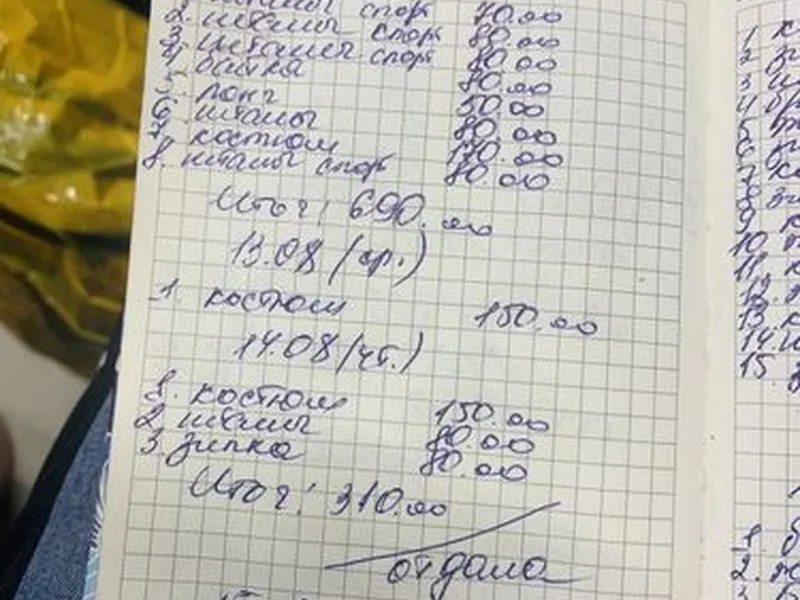 штаны спорт 70.00
2. штаны спорт 80.00
3. штаны спорт 80.00
4. байка 80.00
5. лонг 50.00
6. штаны 80.00
7. костюм 170.00
8. штаны спорт 80.00
Итог: 690.00
13.08 (ср.)
1. костюм 150.00
14.08 (чт.)
1. костюм 150.00
2. штаны 80.00
3. зипка 80.00
Итог: 310.00
отдала
1
2
3
4
5
6
7
8
9
10
11.
12.
13
14.
15
1.
2.
3